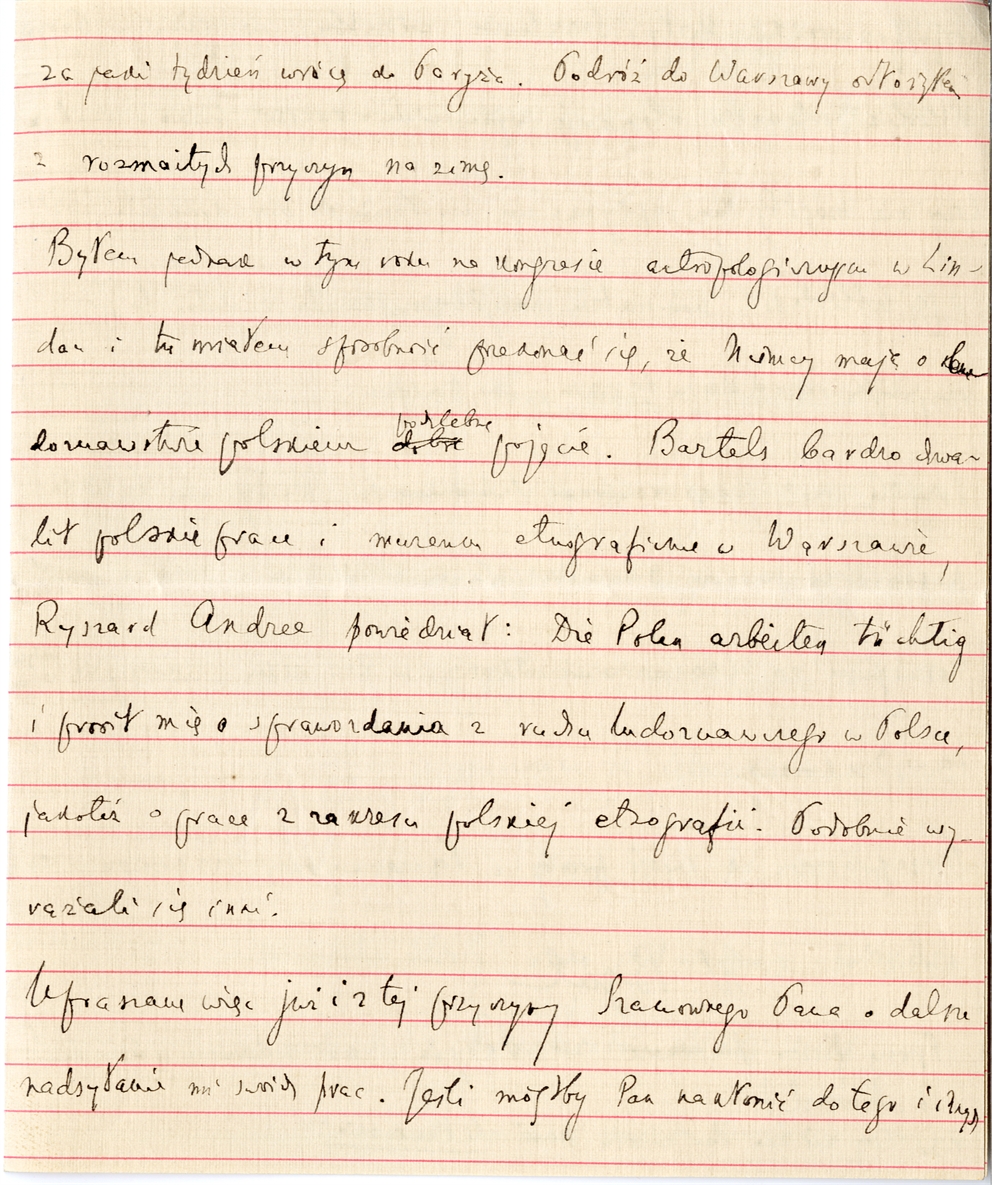 za jaki tydzień wrócę do Paryża. Podróż do Warszawy odłożyłem
z rozmaitych przyczyn na zimę.
Byłem jednak w tym roku na kongresie antropologicznym w Lin-
dau i tu miałem sposobność przekonać się, że Niemcy mają o
doznawstwie polskiem pochlebne pojęcie. Bartels bardzo chwa-
lił polskie prace i muzeum etnograficzne w Warszawie,
Ryszard Andree powiedział: Die Polen arbeiten tüchtig
i prosił mię o sprawozdania z ruchu ludoznawczego w Polsce,
jakoteż o prace z zakresu polskiej etnografii. Podobnie wy-
rażali się inni.
Upraszam więc już i z tej przyczyny Szanownego Pana o dalsze
nadsyłanie mi swoich prac. Jeśli mógłby Pan nakłonić do tego i innych